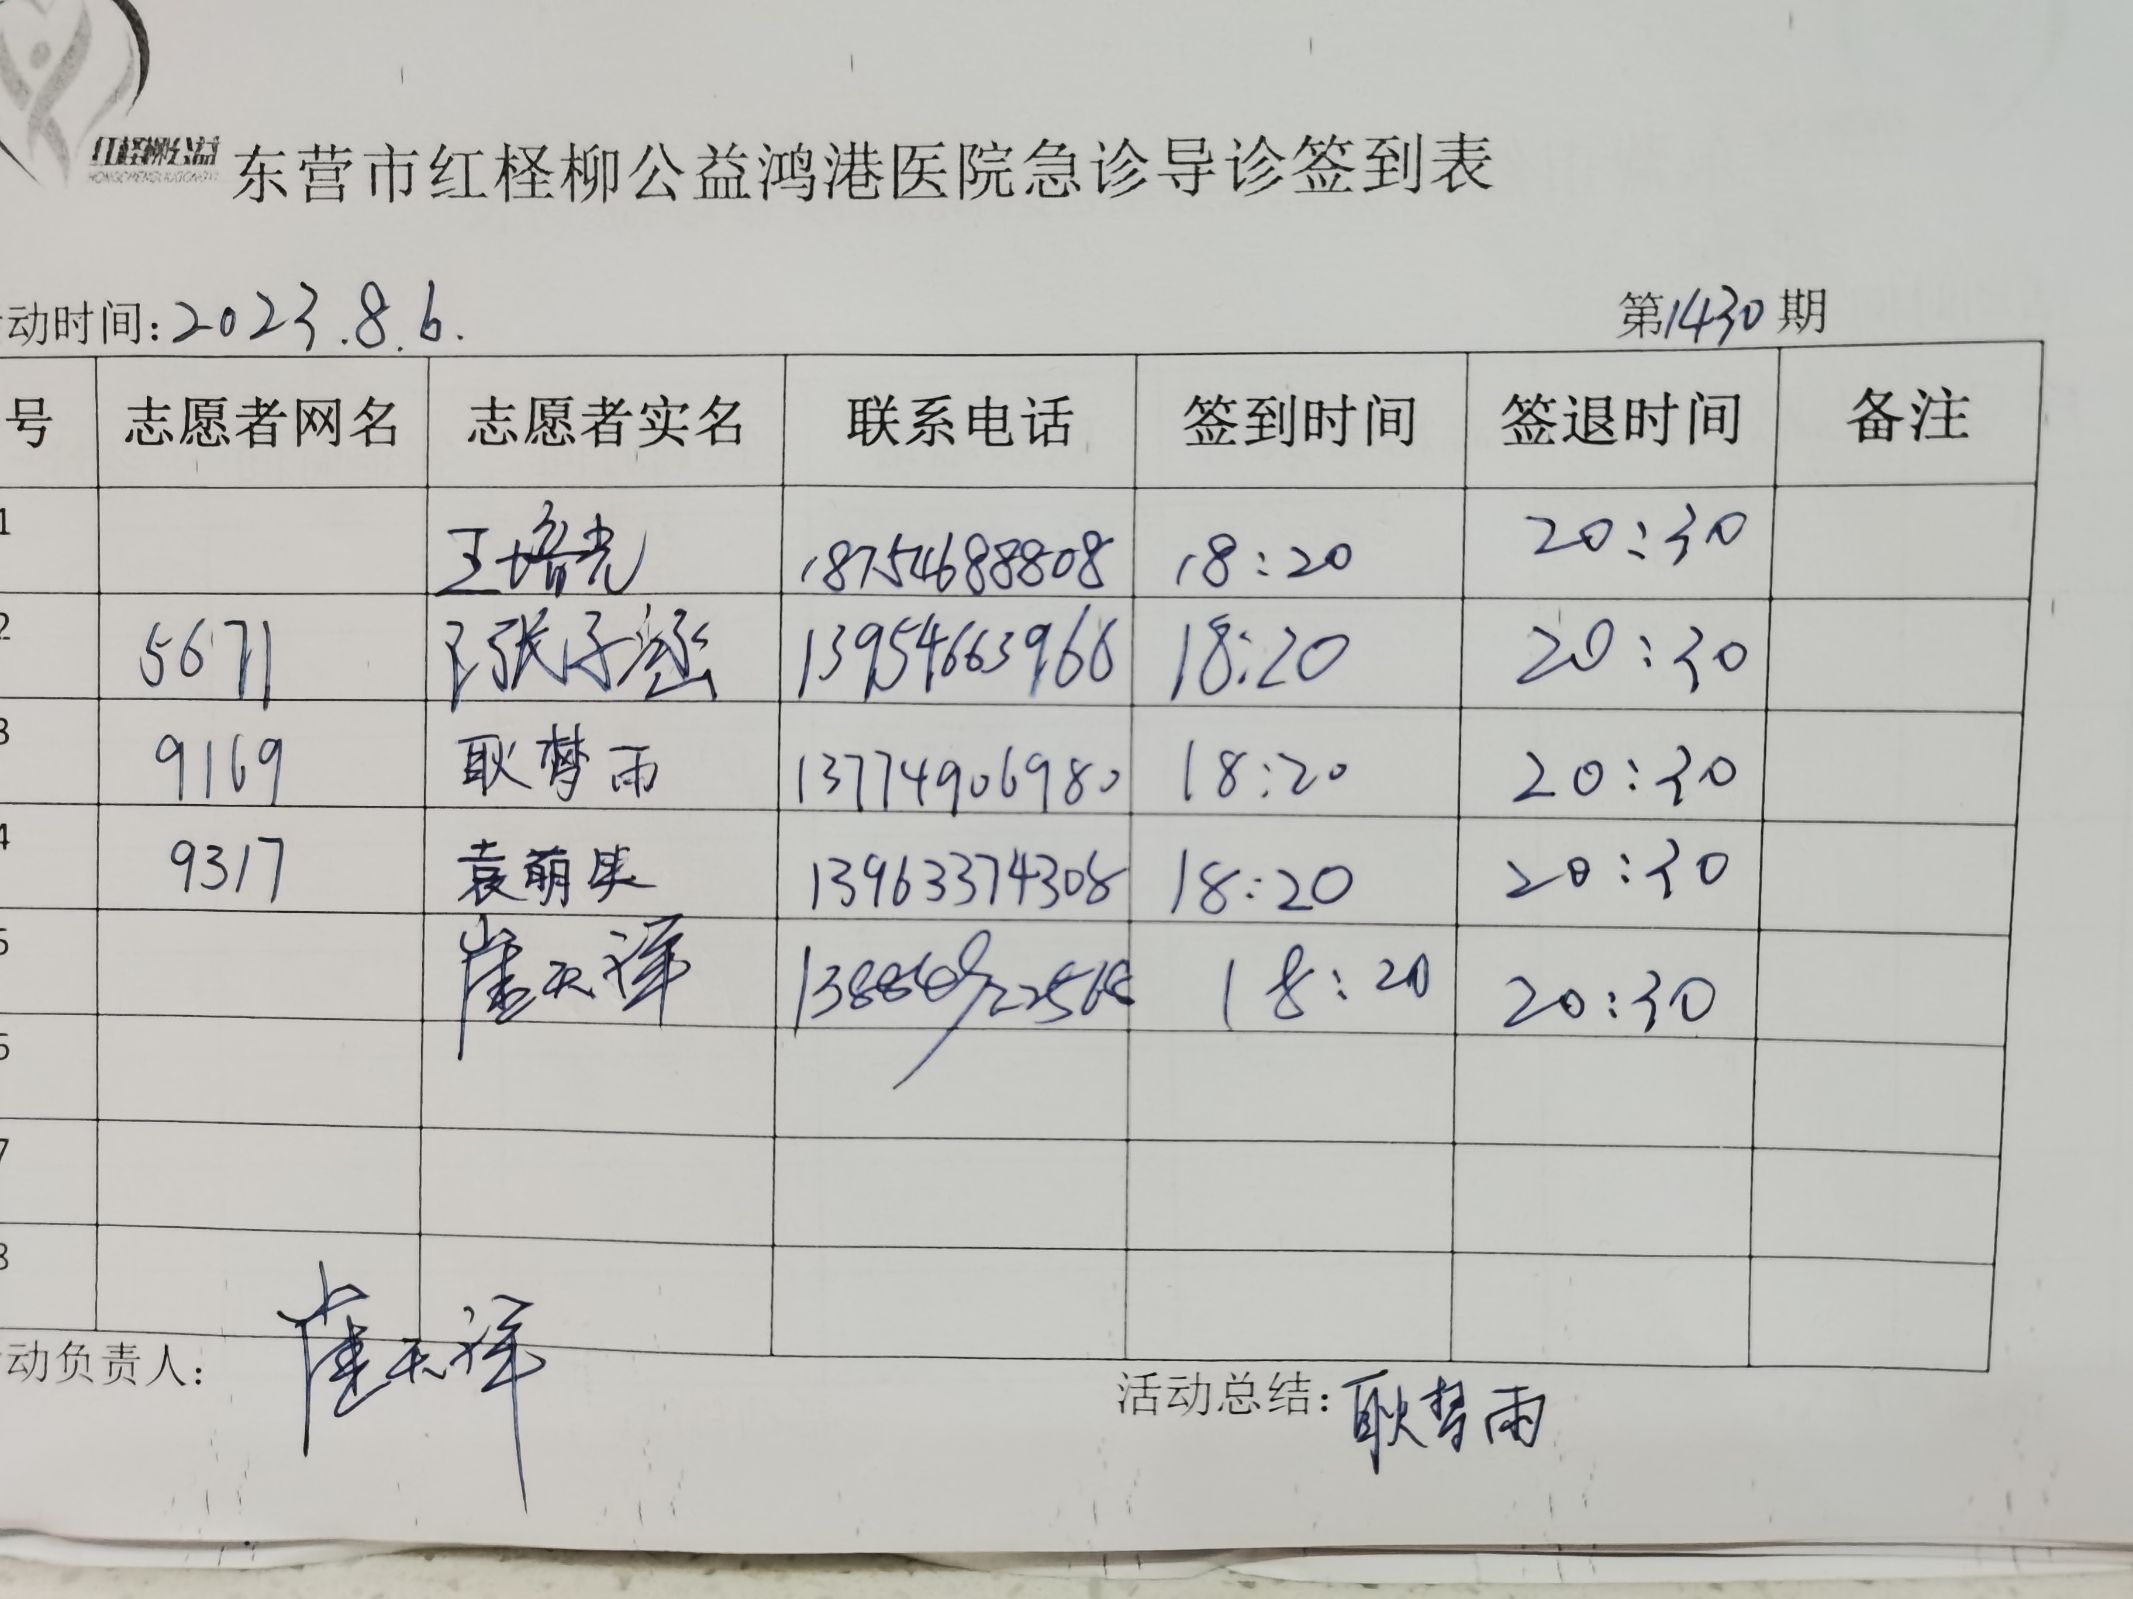 红柽柳公益
东营市红柽柳公益鸿港医院急诊导诊签到表
动时间:2023.8.6.
第1430期
号 志愿者网名 志愿者实名 联系电话 签到时间 签退时间 备注
1 王培光 18754688808 18:20 20:30
2 5671 张子涵 13954663966 18:20 20:30
3 9169 耿梦雨 13774906980 18:20 20:30
4 9317 袁萌 13963374308 18:20 20:30
5 崔天洋 18:20 20:30
6
7
8
动负责人: 崔天洋
活动总结: 耿梦雨